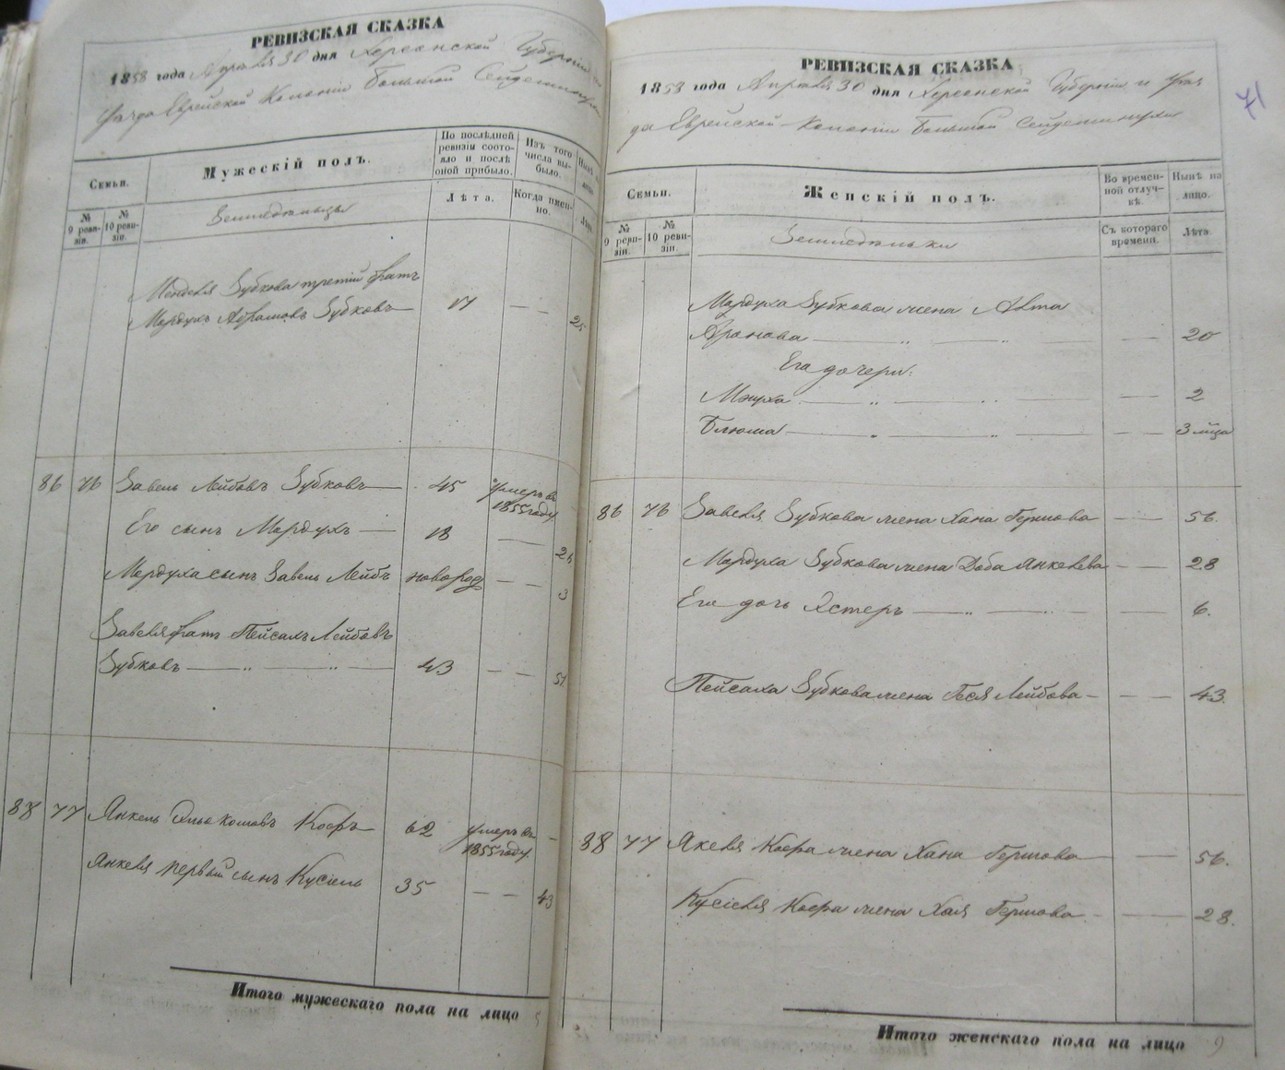 РЕВИЗСКАЯ СКАЗКА
1858 года Апреля 30 дня Херсонской Губернии и
Уезда Еврейской Колонии Большой Сейдеминухи
Семьи.
Мужескій полъ.
По послѣдней ревизіи состояло и послѣ оной прибыло.
Изъ того числа выбыло.
№ 9 ревизіи.
№ 10 ревизіи.
Земледѣльцы
Лѣта.
Когда именно.
Менделя Зубкова третій братъ
Мордухъ Абрамовъ Зубковъ 17 25
86 76 Завель Лейбовъ Зубковъ 45 умеръ въ 1855 году
Его сынъ Мордухъ 18 26
Мордуха сынъ Завель Лейбъ новород 3
Завеля братъ Пейсахъ Лейбовъ
Зубковъ 43 51
88 77 Янкель Кофъ 62 умеръ въ 1855 году
Янкеля первый сынъ Кусіель 35 43
Итого мужескаго пола на лицо 5
71
РЕВИЗСКАЯ СКАЗКА
1858 года Апреля 30 дня Херсонской Губерніи и Уез
да Еврейской Колоніи Большой Сейдеминухи
Семьи.
Женскій полъ.
Во временной отлучкѣ.
Нынѣ на лицо.
№ 9 ревизіи.
№ 10 ревизіи.
Земледѣльки
Съ котораго времени.
Лѣта
Мордуха Зубкова жена
Аронова 20
Его дочери:
Мнуха 2
Блюма 3 мѣса
86 76 Завеля Зубкова жена Хана Гершова 56.
Мордуха Зубкова жена Доба Янкелева 28
Его дочь Эстеръ 6.
Пейсаха Зубкова жена Лейбова 43.
88 77 Янкеля Кофа жена Хана Гершова 56.
Кусіеля Кофа жена Хая Гершова 28.
Итого женскаго пола на лицо 9